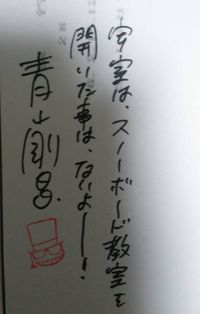 安室は、スノーボード教室を
開いた事は、ないよー!
青山剛昌.